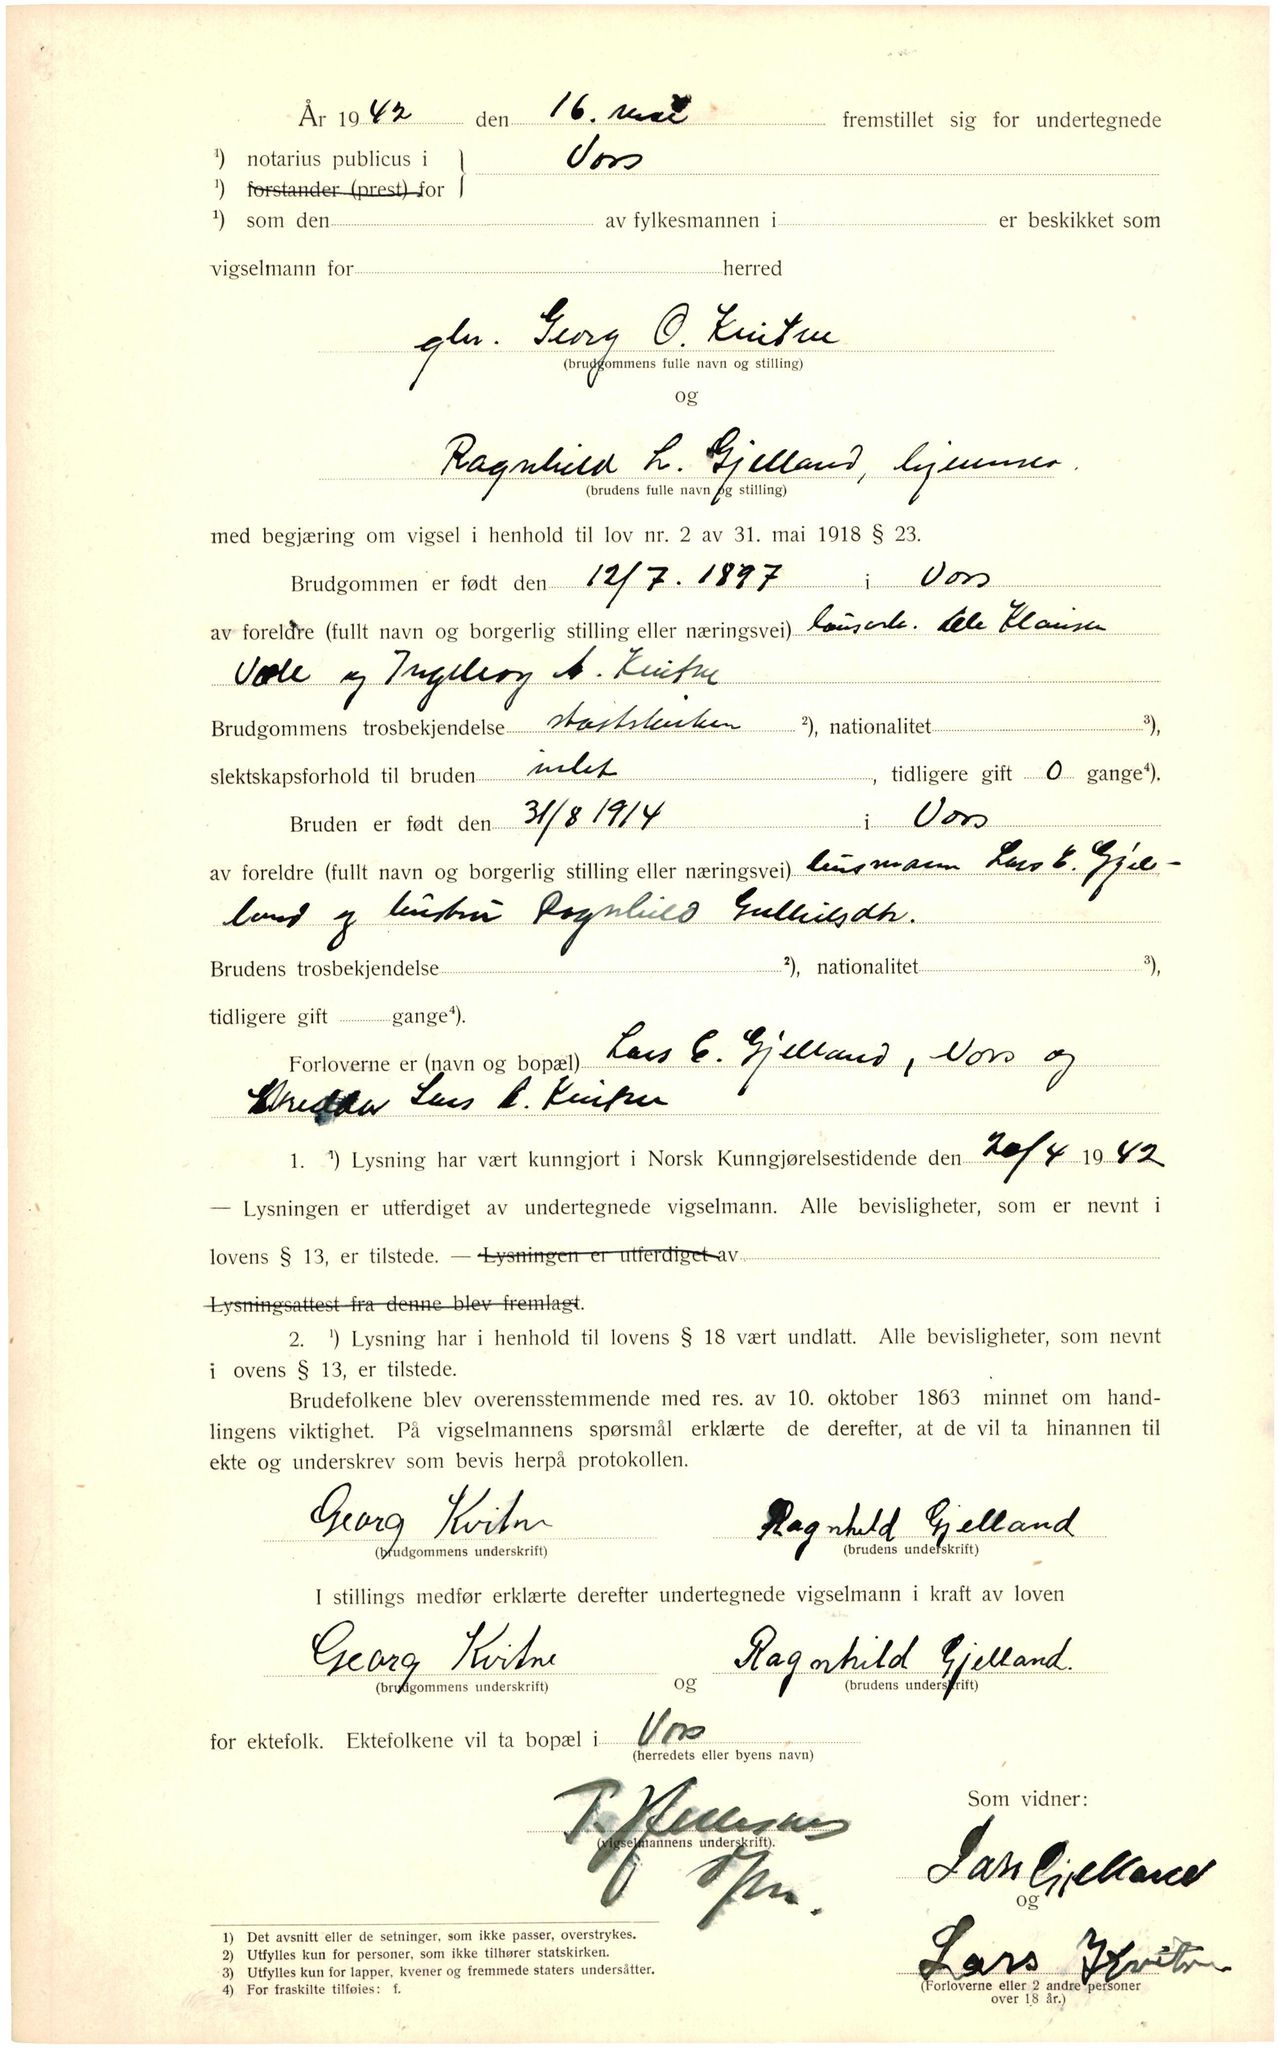 År 1942 den 16. mai fremstillet sig for undertegnede
¹) notarius publicus i } Vors
¹) forstander (prest) for
¹) som den av fylkesmannen i er beskikket som
vigselmann for herred
gbr. Georg O. Kvitne
(brudgommens fulle navn og stilling)
og
Ragnhild L. Gjelland, hjemmev.
(brudens fulle navn og stilling)
med begjæring om vigsel i henhold til lov nr. 2 av 31. mai 1918 § 23.
Brudgommen er født den 12/7. 1897 i Vors
av foreldre (fullt navn og borgerlig stilling eller næringsvei) Klausen
og Ingeborg Kvitne
Brudgommens trosbekjendelse statskirken ²), nationalitet ³),
slektskapsforhold til bruden intet , tidligere gift 0 gange⁴).
Bruden er født den 31/8 1914 i Vors
av foreldre (fullt navn og borgerlig stilling eller næringsvei) husmann Lars E. Gjel-
land og hustru Ragnhild
Brudens trosbekjendelse ²), nationalitet ³),
tidligere gift gange⁴).
Forloverne er (navn og bopæl) Lars E. Gjelland, Vors og
Skredder Lars Kvitne
1. ¹) Lysning har vært kunngjort i Norsk Kunngjørelsestidende den 20/4 1942
— Lysningen er utferdiget av undertegnede vigselmann. Alle bevisligheter, som er nevnt i
lovens § 13, er tilstede. — Lysningen er utferdiget av
Lysningsattest fra denne blev fremlagt.
2. ¹) Lysning har i henhold til lovens § 18 vært undlatt. Alle bevisligheter, som nevnt
i ovens § 13, er tilstede.
Brudefolkene blev overensstemmende med res. av 10. oktober 1863 minnet om hand-
lingens viktighet. På vigselmannens spørsmål erklærte de derefter, at de vil ta hinannen til
ekte og underskrev som bevis herpå protokollen.
Georg Kvitne Ragnhild Gjelland
(brudgommens underskrift) (brudens underskrift)
I stillings medfør erklærte derefter undertegnede vigselmann i kraft av loven
Georg Kvitne Ragnhild Gjelland.
(brudgommens underskrift) og (brudens underskrift)
for ektefolk. Ektefolkene vil ta bopæl i Vors
(herredets eller byens navn)
Som vidner:
(vigselmannens underskrift).
Lars Gjelland
og
Lars Kvitne
(Forloverne eller 2 andre personer
over 18 år.)
1) Det avsnitt eller de setninger, som ikke passer, overstrykes.
2) Utfylles kun for personer, som ikke tilhører statskirken.
3) Utfylles kun for lapper, kvener og fremmede staters undersåtter.
4) For fraskilte tilføies: f.